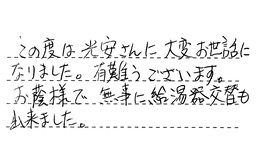 この度は光安さんに大変お世話に
なりました。有難うございます。
お蔭様で無事に給湯器交替も
出来ました。